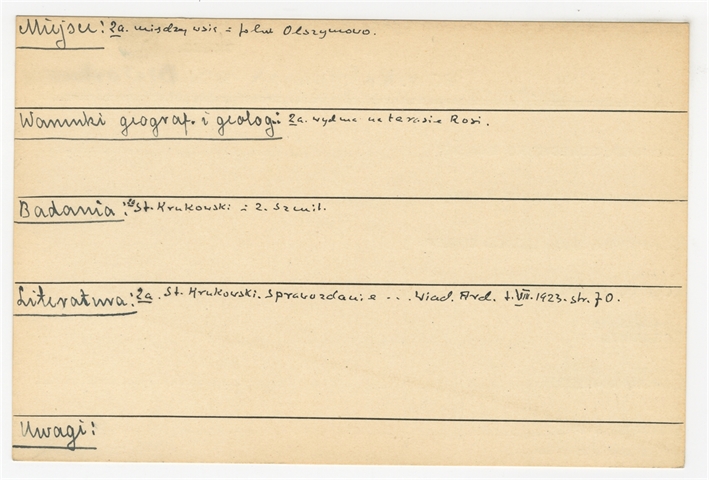 Miejsce: 2a. między wsią i folw. Olszymowo.
Warunki geograf. i geolog.: 2a. wydma na tarasie Rosi.
Badania: 2a St. Krukowski i Z. Szmit.
Literatura: 2a. St. Krukowski. Sprawozdanie ... Wiad. Arch. t. VIII. 1923. str. 70.
Uwagi: